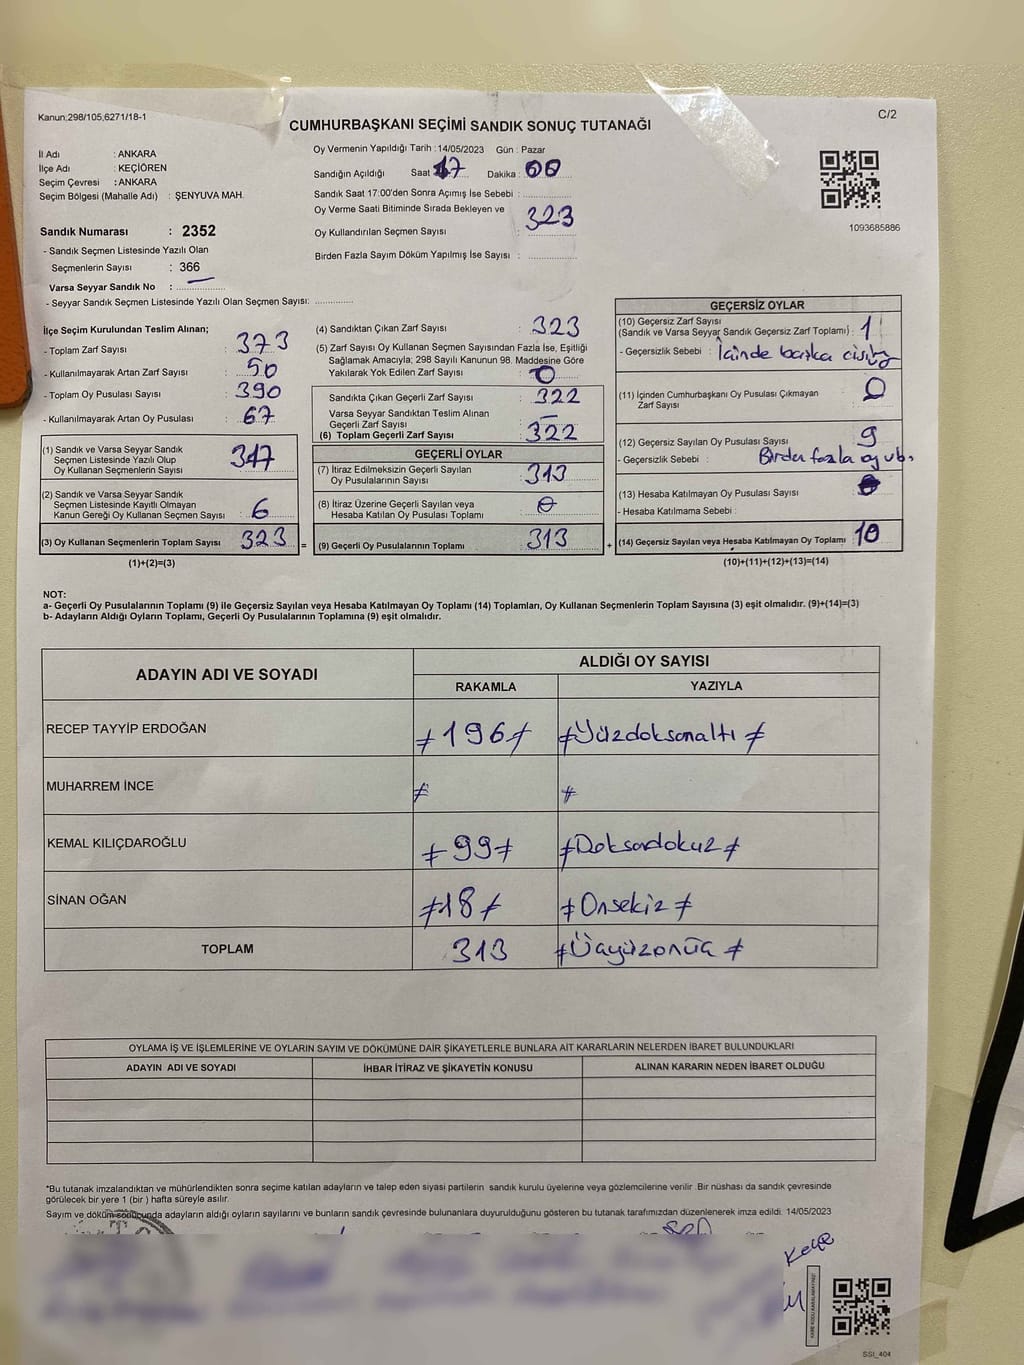 Kanun;298/105,6271/18-1
C/2
CUMHURBAŞKANI SEÇİMİ SANDIK SONUÇ TUTANAĞI
İl Adı : ANKARA
İlçe Adı : KEÇİÖREN
Seçim Çevresi : ANKARA
Seçim Bölgesi (Mahalle Adı) : ŞENYUVA MAH.
Sandık Numarası : 2352
- Sandık Seçmen Listesinde Yazılı Olan
Seçmenlerin Sayısı : 366
Varsa Seyyar Sandık No :
- Seyyar Sandık Seçmen Listesinde Yazılı Olan Seçmen Sayısı:
Oy Vermenin Yapıldığı Tarih : 14/05/2023 Gün : Pazar
Sandığın Açıldığı Saat : 17 Dakika : 00
Sandık Saat 17:00'den Sonra Açımış İse Sebebi :
Oy Verme Saati Bitiminde Sırada Bekleyen ve
Oy Kullandırılan Seçmen Sayısı : 323
Birden Fazla Sayım Döküm Yapılmış İse Sayısı :
1093685886
İlçe Seçim Kurulundan Teslim Alınan;
- Toplam Zarf Sayısı : 373
- Kullanılmayarak Artan Zarf Sayısı : 50
- Toplam Oy Pusulası Sayısı : 390
- Kullanılmayarak Artan Oy Pusulası : 67
(1) Sandık ve Varsa Seyyar Sandık
Seçmen Listesinde Yazılı Olup
Oy Kullanan Seçmenlerin Sayısı : 317
(2) Sandık ve Varsa Seyyar Sandık
Seçmen Listesinde Kayıtlı Olmayan
Kanun Gereği Oy Kullanan Seçmen Sayısı : 6
(3) Oy Kullanan Seçmenlerin Toplam Sayısı : 323
(1)+(2)=(3)
(4) Sandıktan Çıkan Zarf Sayısı : 323
(5) Zarf Sayısı Oy Kullanan Seçmen Sayısından Fazla İse, Eşitliği
Sağlamak Amacıyla; 298 Sayılı Kanunun 98. Maddesine Göre
Yakılarak Yok Edilen Zarf Sayısı : 0
Sandıkta Çıkan Geçerli Zarf Sayısı : 322
Varsa Seyyar Sandıktan Teslim Alınan
Geçerli Zarf Sayısı : –
(6) Toplam Geçerli Zarf Sayısı : 322
GEÇERLİ OYLAR
(7) İtiraz Edilmeksizin Geçerli Sayılan
Oy Pusulalarının Sayısı : 313
(8) İtiraz Üzerine Geçerli Sayılan veya
Hesaba Katılan Oy Pusulası Toplamı : 0
= (9) Geçerli Oy Pusulalarının Toplamı : 313
GEÇERSİZ OYLAR
(10) Geçersiz Zarf Sayısı
(Sandık ve Varsa Seyyar Sandık Geçersiz Zarf Toplamı) : 1
- Geçersizlik Sebebi : İçinde başka cisim
(11) İçinden Cumhurbaşkanı Oy Pusulası Çıkmayan
Zarf Sayısı : 0
(12) Geçersiz Sayılan Oy Pusulası Sayısı : 9
- Geçersizlik Sebebi : Birden fazla oy ub.
(13) Hesaba Katılmayan Oy Pusulası Sayısı : 0
- Hesaba Katılmama Sebebi :
+ (14) Geçersiz Sayılan veya Hesaba Katılmayan Oy Toplamı : 10
(10)+(11)+(12)+(13)=(14)
NOT:
a- Geçerli Oy Pusulalarının Toplamı (9) ile Geçersiz Sayılan veya Hesaba Katılmayan Oy Toplamı (14) Toplamları, Oy Kullanan Seçmenlerin Toplam Sayısına (3) eşit olmalıdır. (9)+(14)=(3)
b- Adayların Aldığı Oyların Toplamı, Geçerli Oy Pusulalarının Toplamına (9) eşit olmalıdır.
ADAYIN ADI VE SOYADI
ALDIĞI OY SAYISI
RAKAMLA YAZIYLA
RECEP TAYYİP ERDOĞAN ≠196≠ ≠Yüzdoksanaltı≠
MUHARREM İNCE ≠ ≠
KEMAL KILIÇDAROĞLU ≠99≠ ≠Doksandokuz≠
SİNAN OĞAN ≠18≠ ≠Onsekiz≠
TOPLAM 313 ≠Üçyüzonüç≠
OYLAMA İŞ VE İŞLEMLERİNE VE OYLARIN SAYIM VE DÖKÜMÜNE DAİR ŞİKAYETLERLE BUNLARA AİT KARARLARIN NELERDEN İBARET BULUNDUKLARI
ADAYIN ADI VE SOYADI İHBAR İTİRAZ VE ŞİKAYETİN KONUSU ALINAN KARARIN NEDEN İBARET OLDUĞU
*Bu tutanak imzalandıktan ve mühürlendikten sonra seçime katılan adayların ve talep eden siyasi partilerin sandık kurulu üyelerine veya gözlemcilerine verilir .Bir nüshası da sandık çevresinde
görülecek bir yere 1 (bir ) hafta süreyle asılır.
Sayım ve döküm sonucunda adayların aldığı oyların sayılarını ve bunların sandık çevresinde bulunanlara duyurulduğunu gösteren bu tutanak tarafımızdan düzenlenerek imza edildi. 14/05/2023
SSI_404